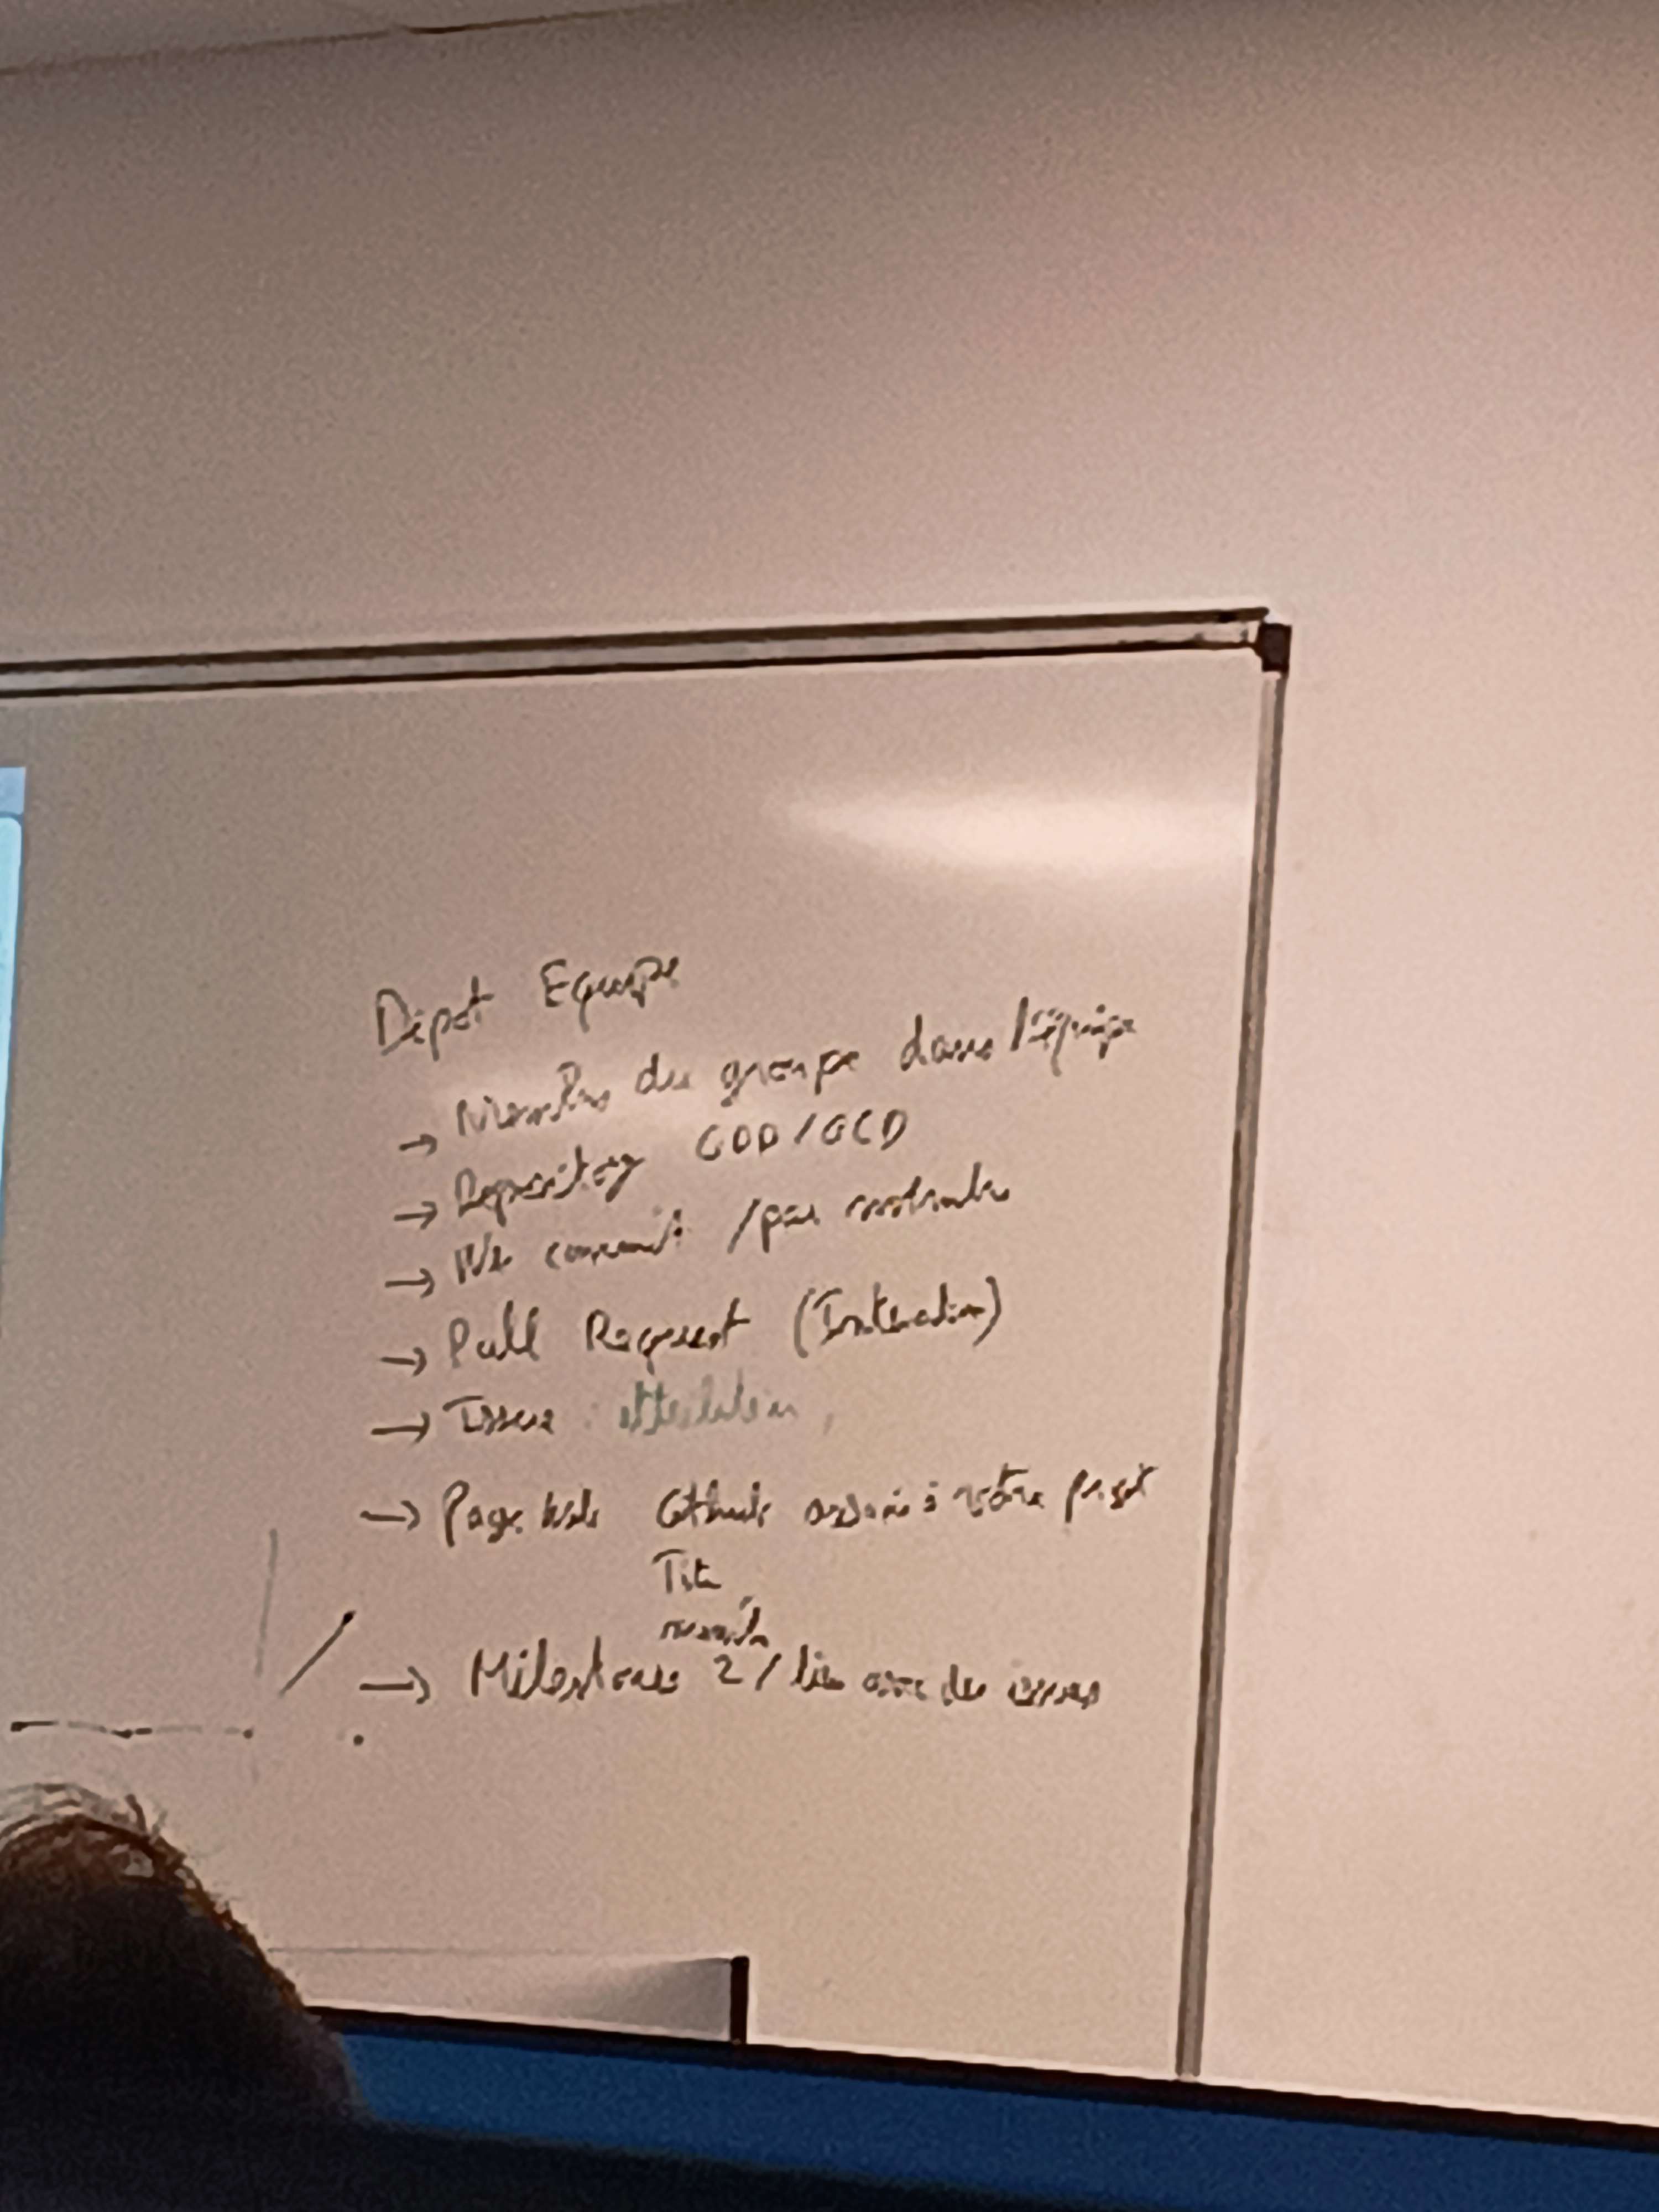 Dépot Equipe
→ Membres du groupe dans l'équipe
→ Repository GOD/GCD
→ Nb commit /par membre
→ Pull Request (Interaction)
→ Issue : attribution,
→ Page Web Github associé à votre projet
Titre
membre
→ Milestones 2/ lien avec des issues